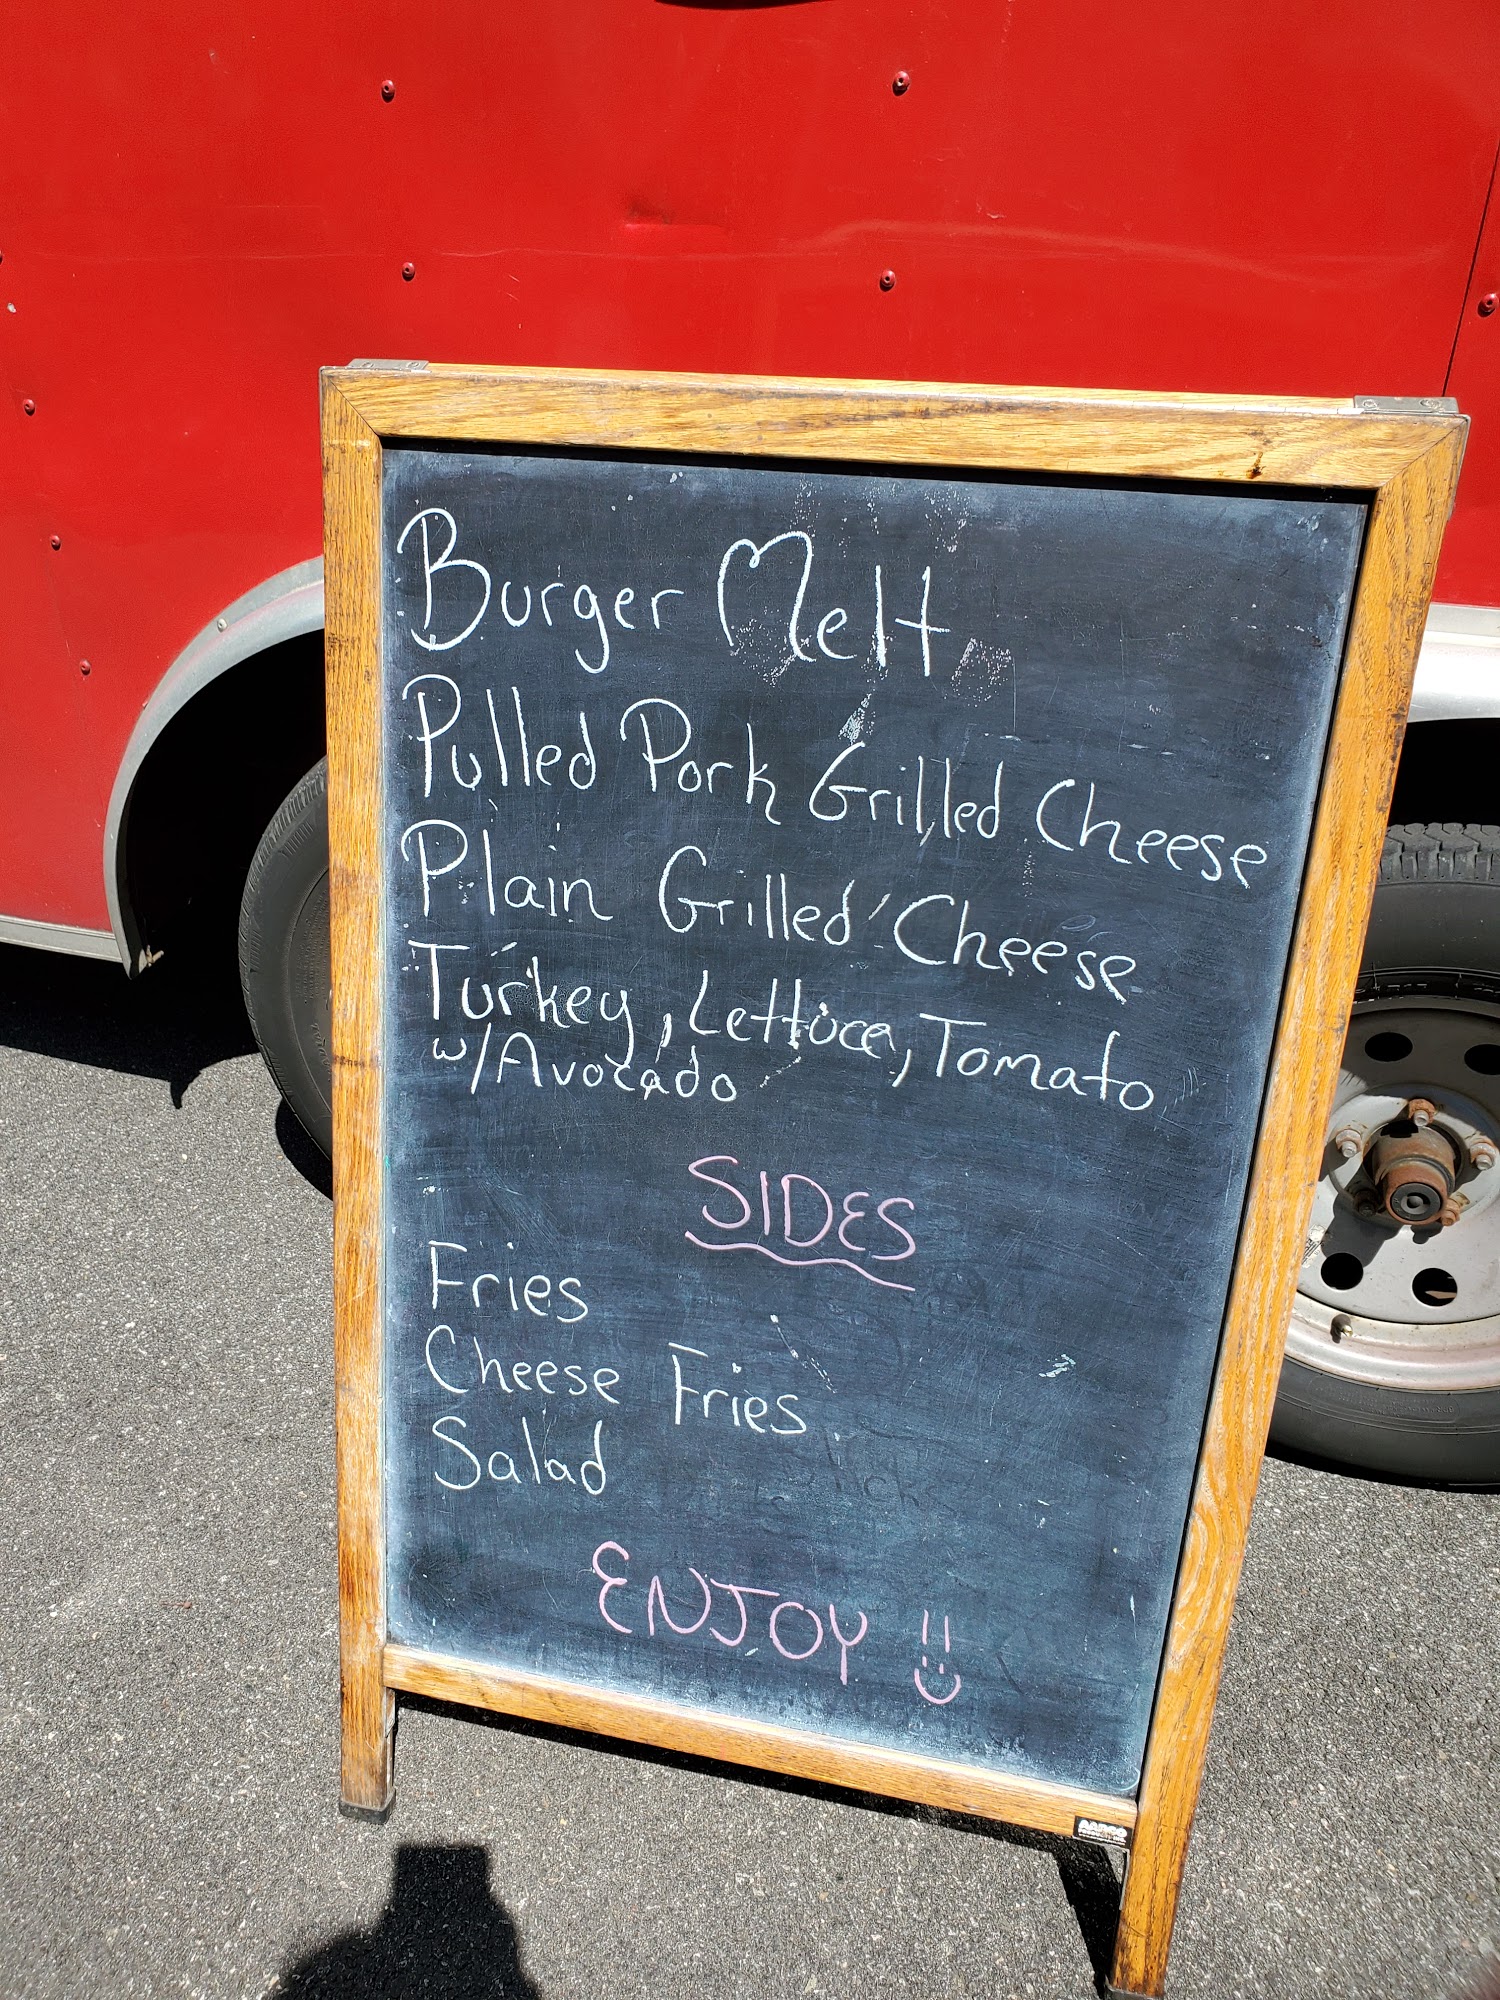 Burger Melt
Pulled Pork Grilled Cheese
Plain Grilled Cheese
Turkey, Lettuce, Tomato
w/Avocado
SIDES
Fries
Cheese Fries
Salad
ENJOY